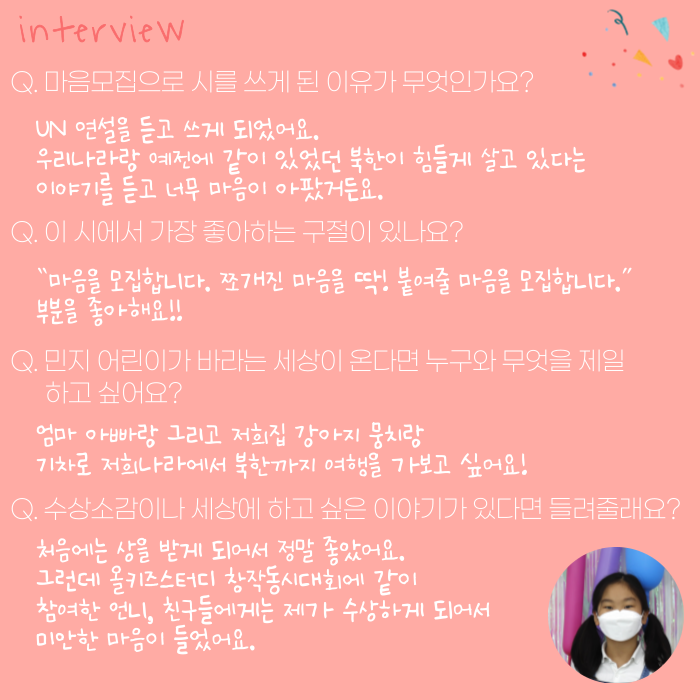 interview
Q. 마음모집으로 시를 쓰게 된 이유가 무엇인가요?
UN 연설을 듣고 쓰게 되었어요.
우리나라랑 예전에 같이 있었던 북한이 힘들게 살고 있다는
이야기를 듣고 너무 마음이 아팠거든요.
Q. 이 시에서 가장 좋아하는 구절이 있나요?
"마음을 모집합니다. 쪼개진 마음을 딱! 붙여줄 마음을 모집합니다."
부분을 좋아해요!!
Q. 민지 어린이가 바라는 세상이 온다면 누구와 무엇을 제일
하고 싶어요?
엄마 아빠랑 그리고 저희집 강아지 뭉치랑
기차로 저희나라에서 북한까지 여행을 가보고 싶어요!
Q. 수상소감이나 세상에 하고 싶은 이야기가 있다면 들려줄래요?
처음에는 상을 받게 되어서 정말 좋았어요.
그런데 올키즈스터디 창작동시대회에 같이
참여한 언니, 친구들에게는 제가 수상하게 되어서
미안한 마음이 들었어요.